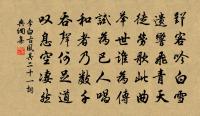 郢客吟白雪
遺響飛青天
徒勞歌此曲
舉世誰為傳
試為巴人唱
和者乃數千
吞聲何足道
嘆息空悽然
李白古風其二十一詞
典網集